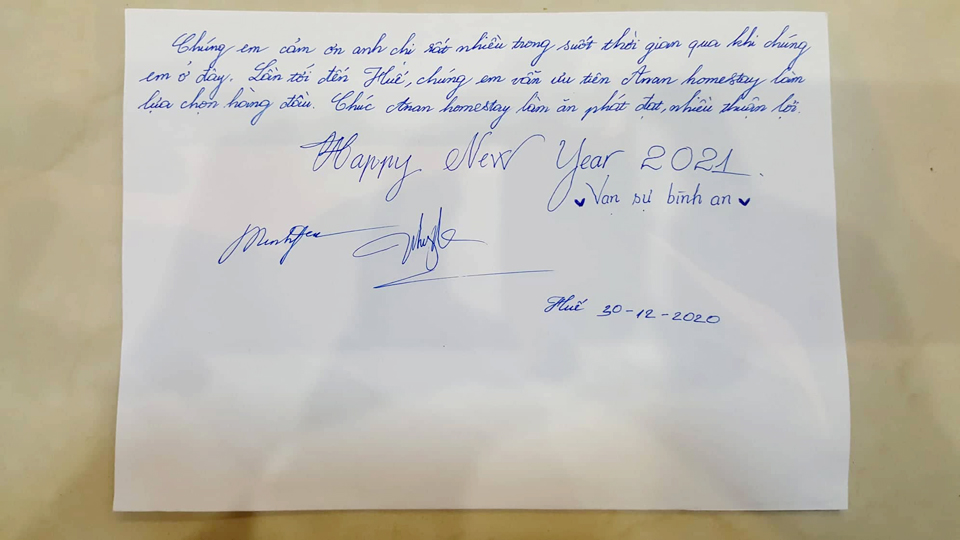 Chúng em cảm ơn anh chị rất nhiều trong suốt thời gian qua khi chúng
em ở đây. Lần tới đến Huế, chúng em vẫn ưu tiên Anan homestay làm
lựa chọn hàng đầu. Chúc Anan homestay làm ăn phát đạt, nhiều thuận lợi.
Happy New Year 2021.
Vạn sự bình an
Huế 30-12-2020